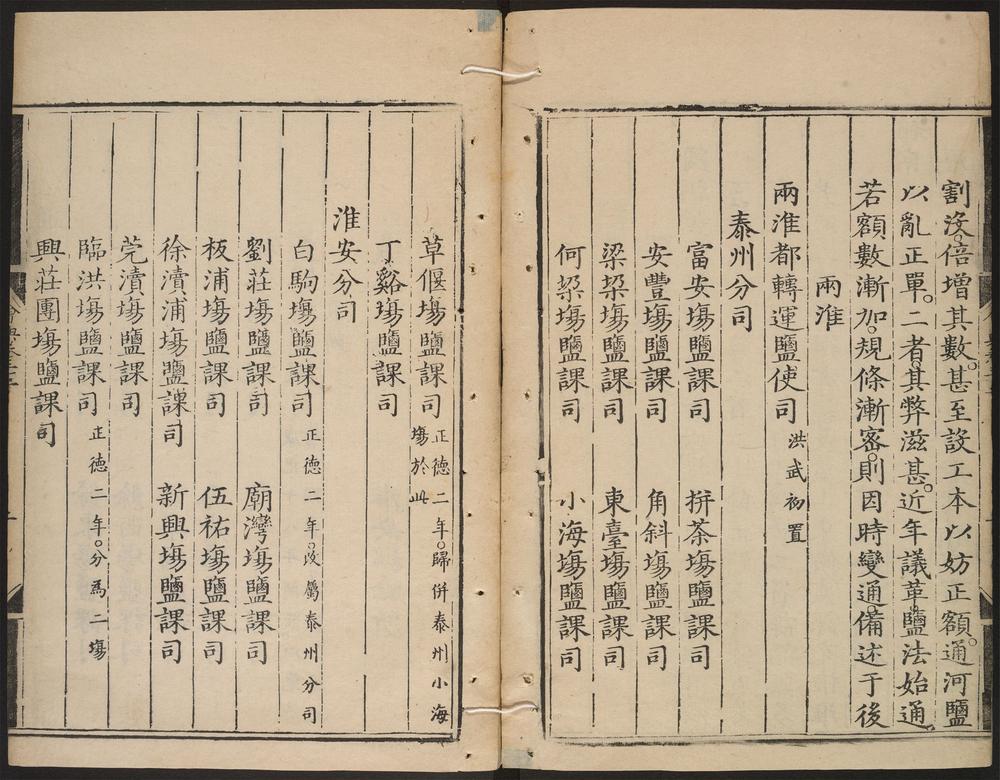 割沒。倍增其數。甚至設工本以妨正額。通河鹽
以亂正單。二者。其弊滋甚。近年議革。鹽法始通。
若額數漸加。規條漸密。則因時變通。備述于後
兩淮
兩淮都轉運鹽使司 洪武初置
泰州分司
富安塲鹽課司 拼茶塲鹽課司
安豐塲鹽課司 角斜塲鹽課司
梁垜塲鹽課司 東臺塲鹽課司
何垜塲鹽課司 小海塲鹽課司
草偃塲鹽課司 正德二年。歸併泰州小海塲於此
丁谿塲鹽課司
淮安分司
白駒塲鹽課司 正德二年。改屬泰州分司
劉莊塲鹽課司 廟灣塲鹽課司
板浦塲鹽課司 伍祐塲鹽課司
徐瀆浦塲鹽課司 新興塲鹽課司
莞瀆塲鹽課司
臨洪塲鹽課司 正德二年。分爲二塲
興莊團塲鹽課司